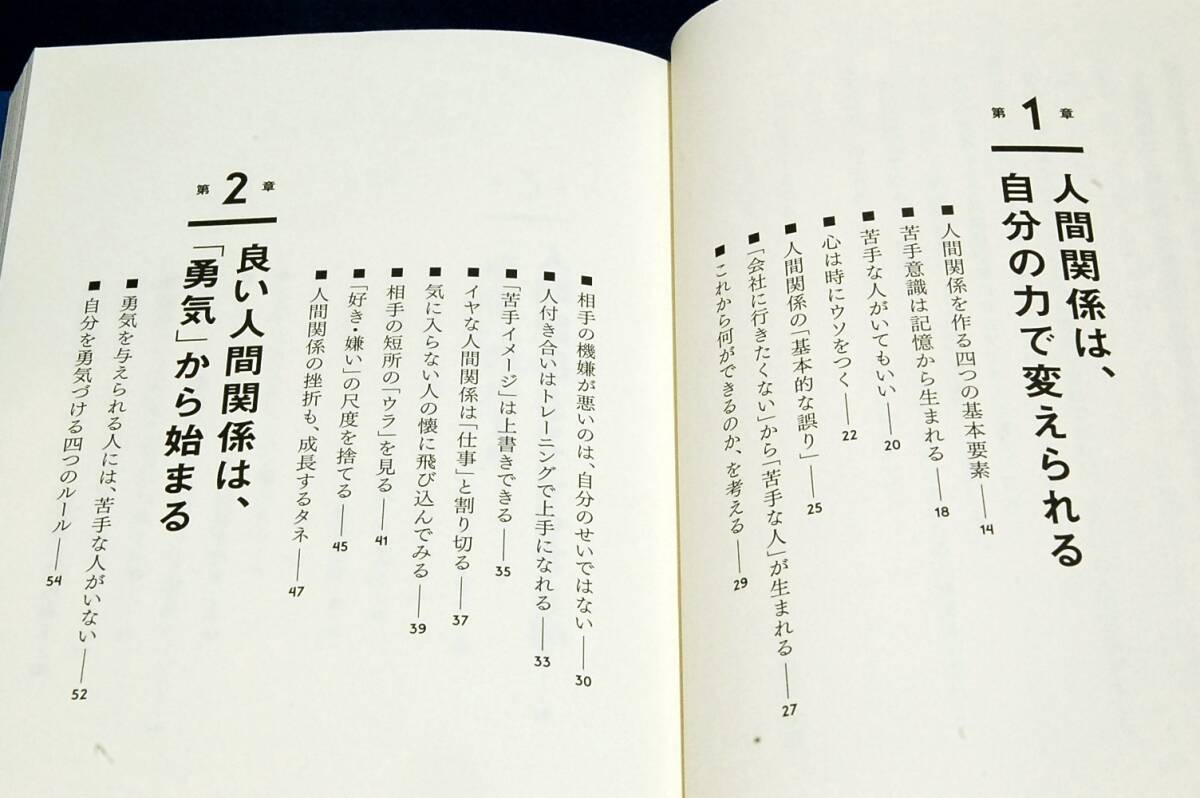 第1章
人間関係は、
自分の力で変えられる
■人間関係を作る四つの基本要素──14
■苦手意識は記憶から生まれる──18
■苦手な人がいてもいい──20
■心は時にウソをつく──22
■人間関係の「基本的な誤り」──25
■「会社に行きたくない」から「苦手な人」が生まれる──27
■これから何ができるのか、を考える──29
■相手の機嫌が悪いのは、自分のせいではない──30
■人付き合いはトレーニングで上手になれる──33
■「苦手イメージ」は上書きできる──35
■イヤな人間関係は「仕事」と割り切る──37
■気に入らない人の懐に飛び込んでみる──39
■相手の短所の「ウラ」を見る──41
■「好き・嫌い」の尺度を捨てる──45
■人間関係の挫折も、成長するタネ──47
第2章
良い人間関係は、
「勇気」から始まる
■勇気を与えられる人には、苦手な人がいない──52
■自分を勇気づける四つのルール──54